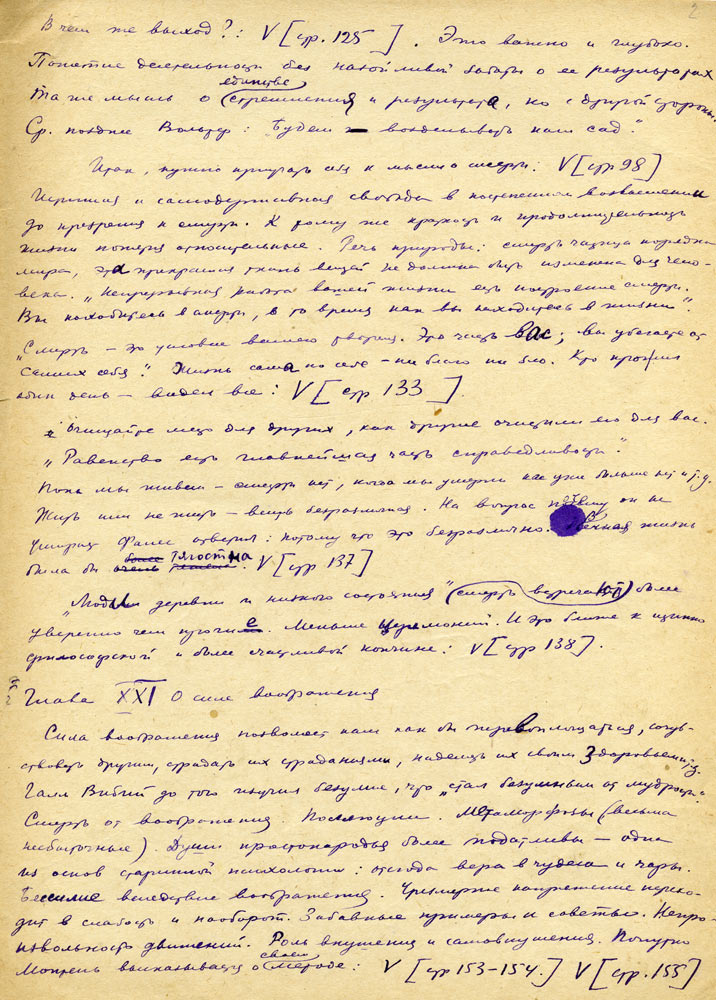 2
В чем же выход?: V [стр. 125]. Это важно и глубоко.
Понятие деятельности без назойливой заботы о ее результатах
единстве
Та же мысль о стремления и результата, но с другой стороны.
Ср. позднее Вольтер: "Будем возделывать наш сад."
Итак, нужно приучать себя к мысли о смерти. V [стр 98]
Истинная и самодержавная свобода в постепенном возвышении
до презрения к смерти. К тому же краткость и продолжительность
жизни понятия относительные. Речь природы: смерть частица порядка
мира, эта прекрасная ткань вещей не должна быть изменена для чело-
века. „Непрерывная работа вашей жизни есть построение смерти.
Вы находитесь в смерти, в то время как вы находитесь в жизни".
„Смерть – это условие вашего творения. Это часть вас; вы убегаете от
самих себя". Жизнь сама по себе – ни благо ни зло. Кто прожил
один день – видел все: V [стр 133].
„Очищайте место для других, как другие очистили его для вас.
„Равенство есть главнейшая часть справедливости".
Пока мы живем – смерти нет, когда мы умерли нас уже больше нет и т.д.
Жить или не жить – вещь безразличная. На вопрос почему он не
умирал Фалес ответил: потому что это безразлично. Вечная жизнь
была бы тягостна. V [стр 137]
„Люди деревни и низкого состояния" (смерть встречают) более
уверенно чем прочие. Меньше церемоний. И это ближе к истинно
философской и более счастливой кончине: V [стр 138].
Глава XXI О силе воображения
Сила воображения позволяет нам как бы перевоплощаться, сочув-
ствовать другим, страдать их страданиями, наделять их своим здоровьем и т.д.
Галл Вибий до того изучил безумие, что „стал безумным от мудрости".
Смерть от воображения. Поллюции. Метаморфозы (весьма
небыточные). Души простонародья более податливы – одна
из основ старинной психологии: отсюда вера в чудеса и чары.
Бессилие вследствие воображения. Чрезмерное напряжение перехо-
дит в слабость и наоборот. Забавные примеры и советы. Непро-
извольность движений. Роль внушения и самовнушения. Попутно
своем
Монтень высказывается о методе: V [стр 153-154.] V [стр. 155]